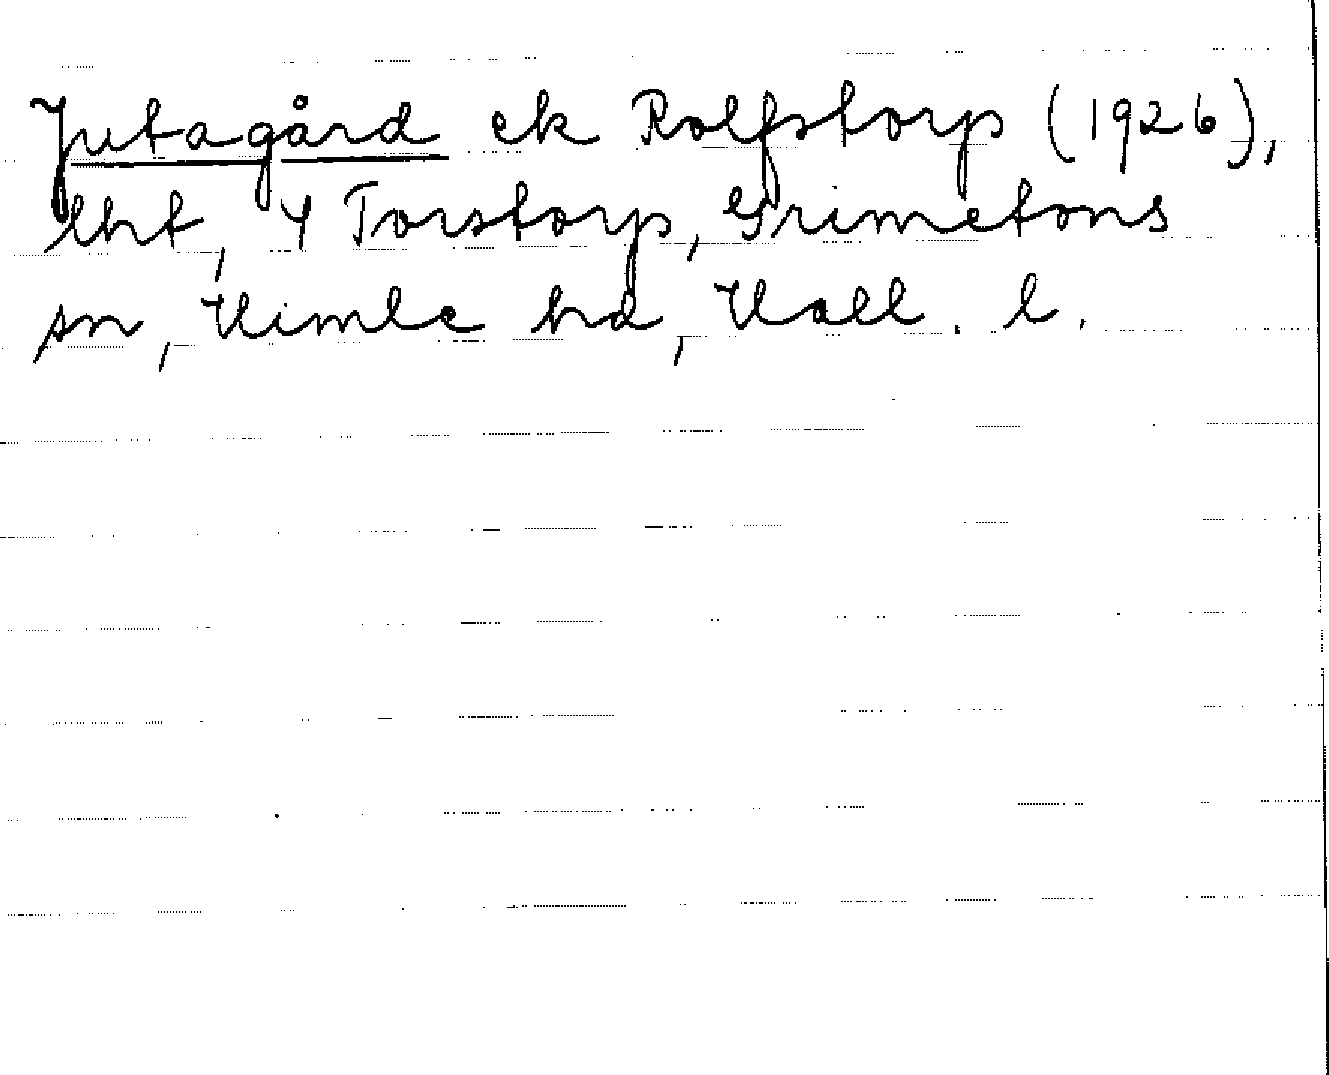 Jutagård ek Rolfstorp (1926),
lht, 4 Torstorp, Grimetons
sn, Himle hd, Hall. l.